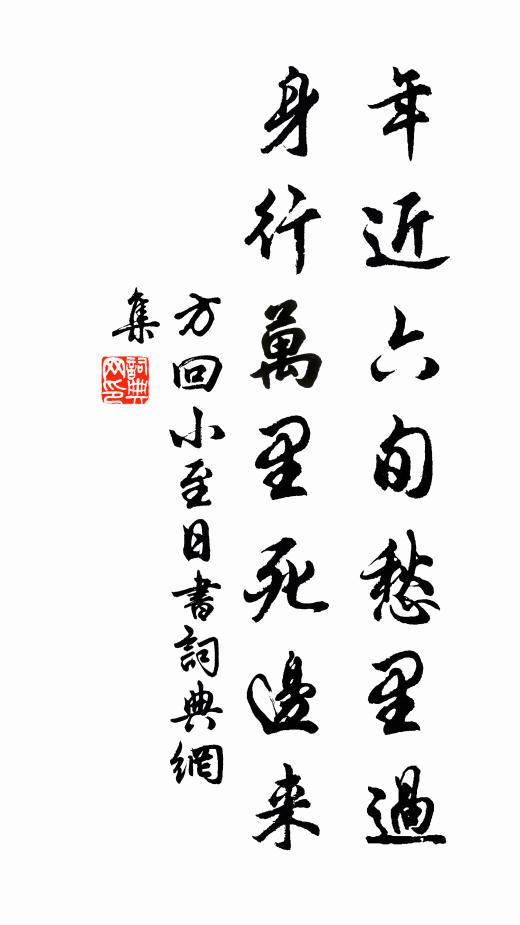 年近六旬愁里過
身行萬里死邊来
方回小至日書詞典網
集
詞典网印